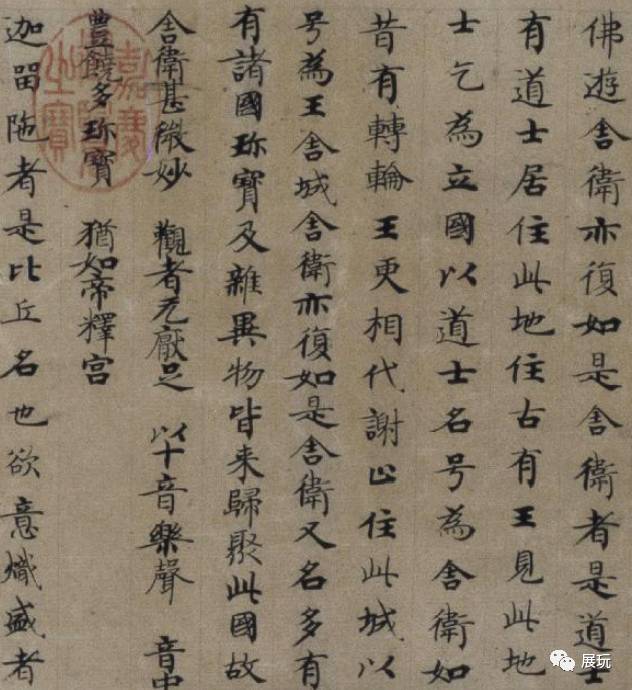 佛遊舍衛亦復如是舍衛者是道士
有道士居住此地住古有王見此地
士乞為立國以道士名号為舍衛如
昔有轉輪王更相代謝止住此城以
号為王舍城舍衛亦復如是舍衛又名多有
有諸國珎寶及雜異物皆来歸聚此國故
舍衛甚微妙 觀者无厭足 以十音樂聲 音中
豐饒多珎寶 猶如帝釋宮
迦留陁者是比丘名也欲意熾盛者
嘉慶
之寶
展玩